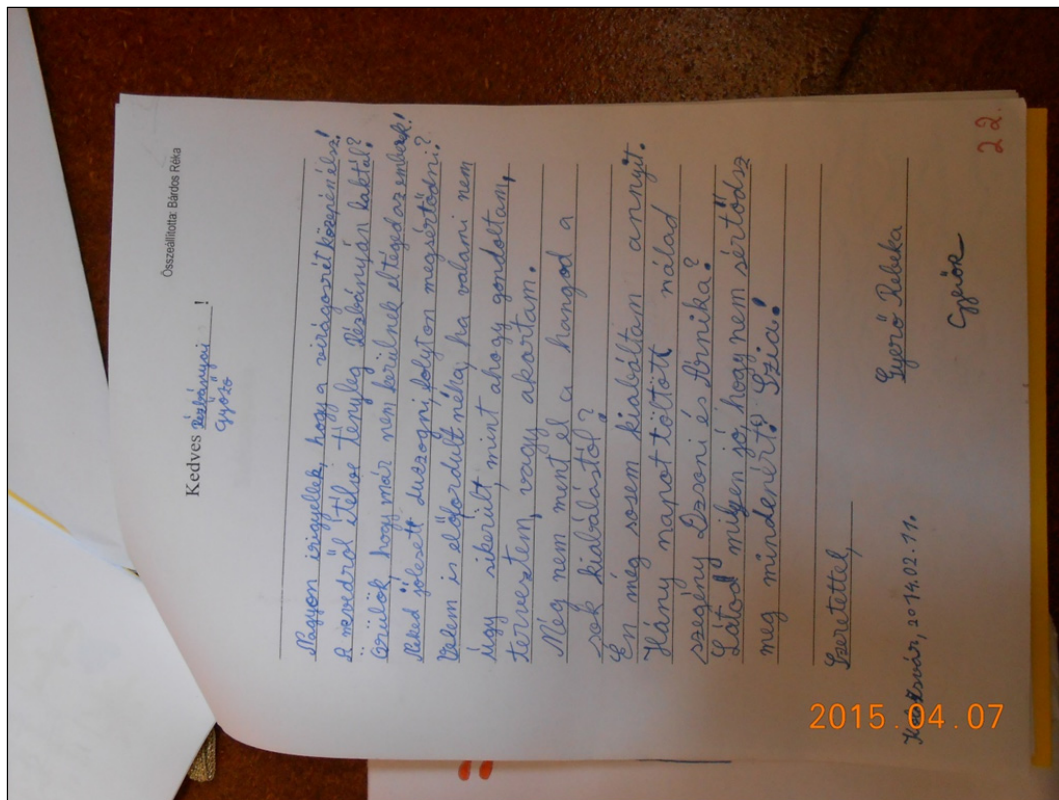 Összeállította: Bárdos Réka
Kedves Rézbányai
Győző !
Nagyon irigyellek, hogy a virágosrét közepén élsz!
A nevedről ítélve tényleg Rézbányán laktál?
Örülök, hogy már nem kerülnek el téged az emberek!
Neked jólesett duzzogni, folyton megsértődni?
Velem is előfordult néha, ha valami nem
úgy sikerült, mint ahogy gondoltam,
terveztem, vagy akartam.
Még nem ment el a hangod a
sok kiabálástól?
Én még sosem kiabáltam annyit.
Hány napot töltött nálad
szegény Dzsoni és Annika?
Látod milyen jó, hogy nem sértődsz
meg mindenért? Szia!
Szeretettel,
Gyerő Rebeka
Kolozsvár, 2014.02.11.
22.
2015.04.07